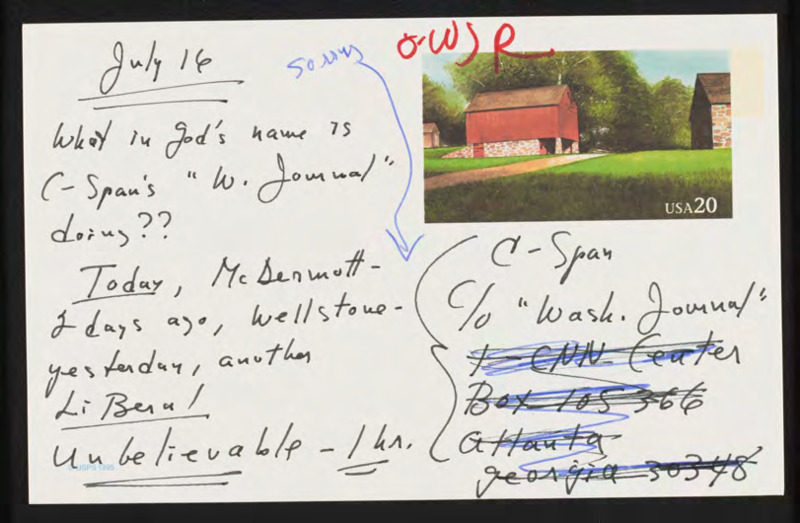 July 16
What in God's name is
C-Span's "W. Journal"
doing??
Today, McDermott-
2 days ago, Wellstone-
yesterday, another
LiBeral
Unbelievable - 1 hr.
©USPS 1995
sorry
WJR
USA20
C-Span
C/o "Wash. Journal"
1-CNN Center
Box 105 366
Atlanta
georgia 30348